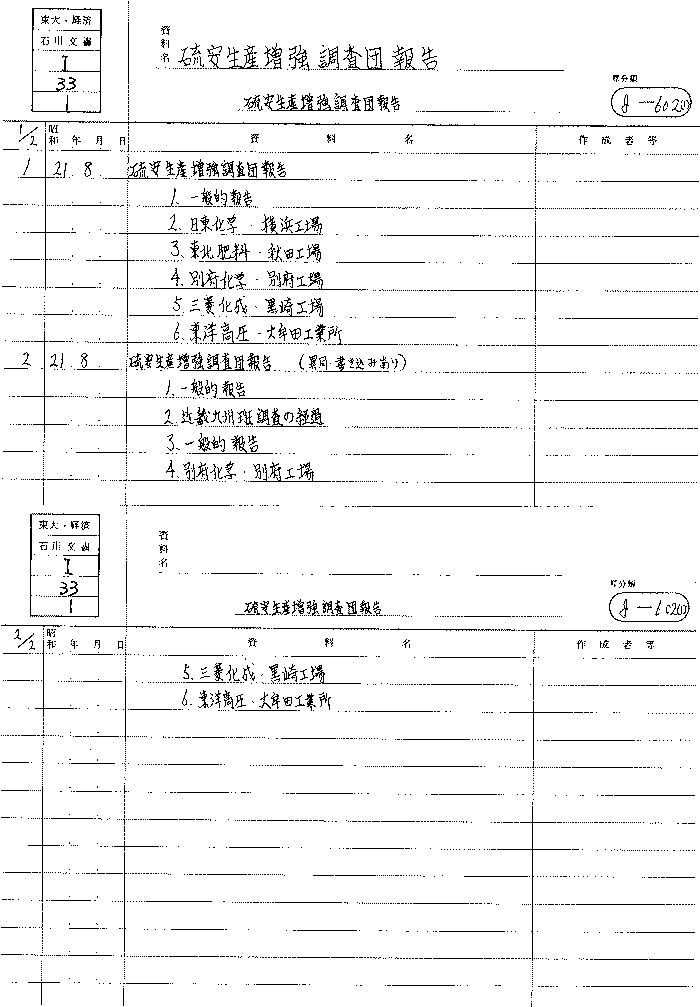 東大・経済
石川文書
I
33
1
資料名 硫安生産増強調査団報告
硫安生産増強調査団報告
原分類
1/2 昭和 年 月 日 資料名 作成者等
1 21 8 硫安生産増強調査団報告
1. 一般的報告
2. 日東化学・横浜工場
3. 東北肥料・秋田工場
4. 別府化学・別府工場
5. 三菱化成・黒崎工場
6. 東洋高圧・大牟田工業所
2 21 8 硫安生産増強調査団報告 (異同・書き込みあり)
1. 一般的報告
2. 近畿九州班調査の経過
3. 一般的報告
4. 別府化学・別府工場
東大・経済
石川文書
I
33
1
資料名
硫安生産増強調査団報告
原分類
2/2 昭和 年 月 日 資料名 作成者等
5. 三菱化成・黒崎工場
6. 東洋高圧・大牟田工業所